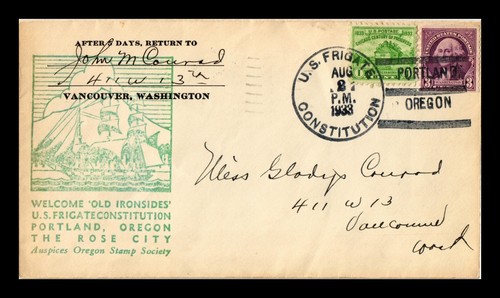 AFTER 5 DAYS, RETURN TO
John M Conrad
411 W 13th
VANCOUVER, WASHINGTON
U.S. FRIGATE
AUG
2
P.M.
1933
CONSTITUTION
PORTLAND,
OREGON
U.S. POSTAGE
3
Miss Gladys Conrad
411 W 13
Vancouver
Wash
WELCOME 'OLD IRONSIDES'
U.S. FRIGATE CONSTITUTION
PORTLAND, OREGON
THE ROSE CITY
Auspices Oregon Stamp Society